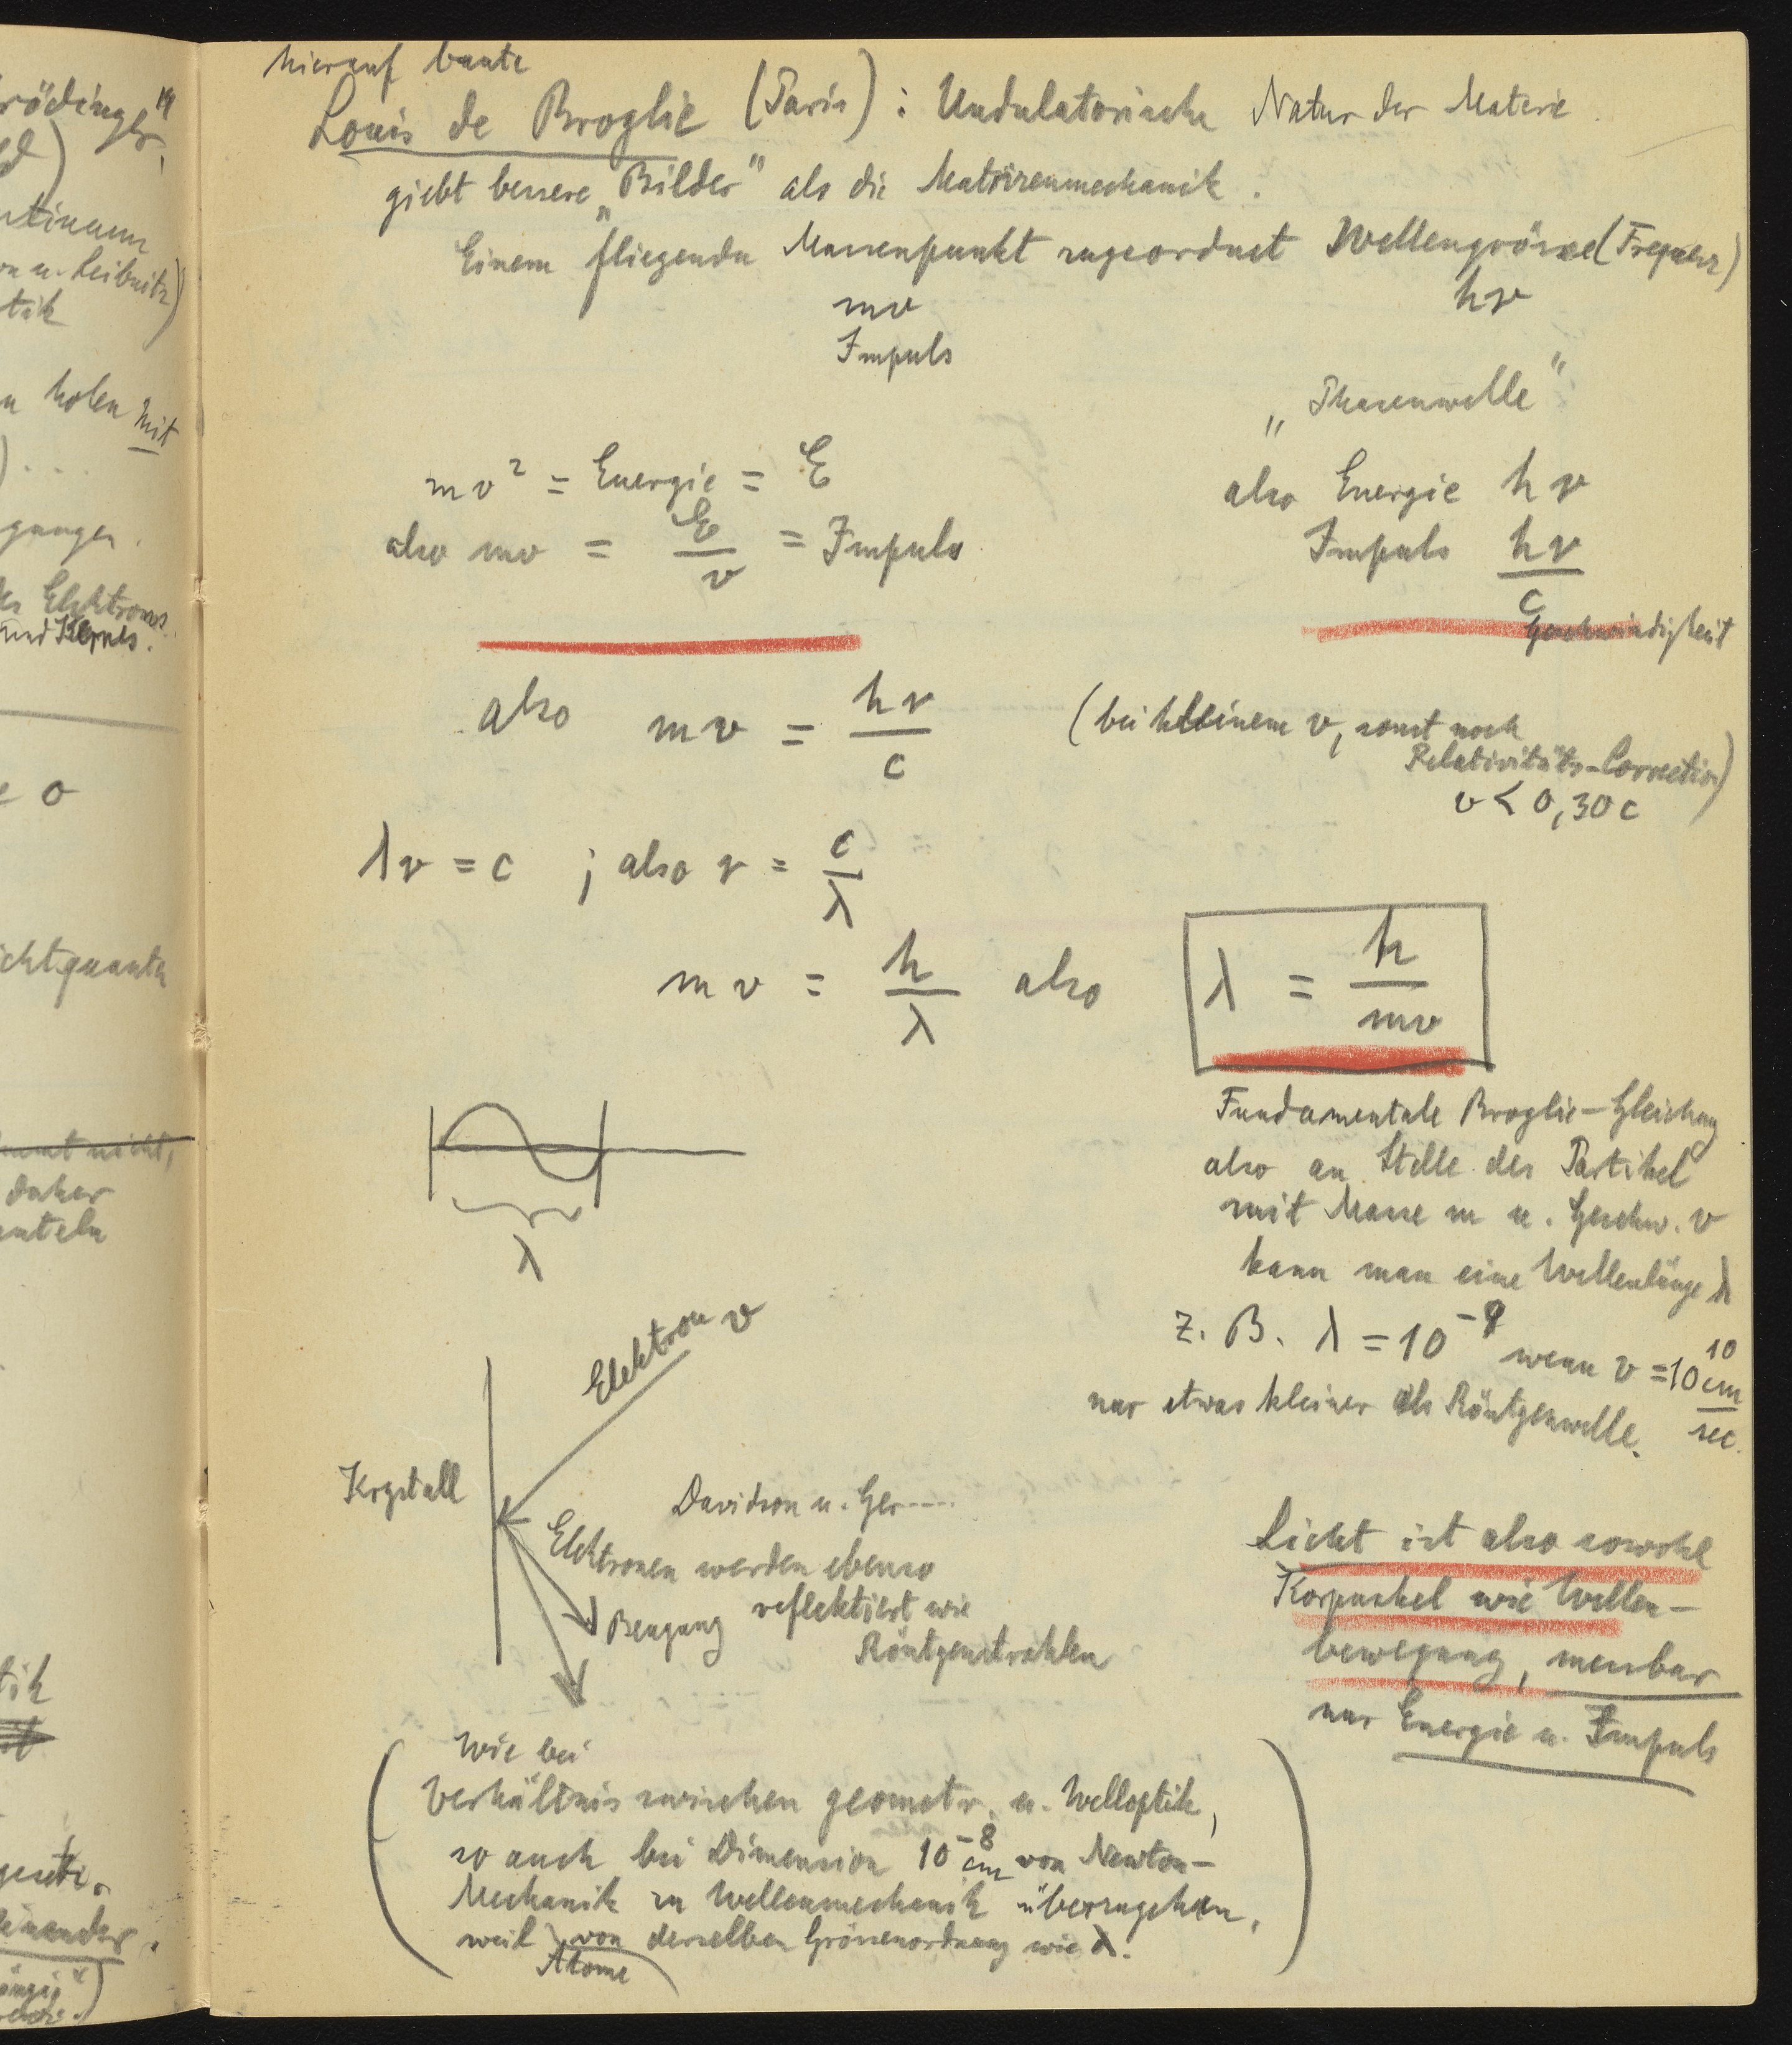 hierauf baute
Louis de Broglie (Paris) : Undulatorische Natur der Materie.
giebt bessere „Bilder" als die Matrizenmechanik.
Einem fliegenden Massenpunkt zugeordnet Wellengrösse (Frequenz)
mv hν
Impuls
„Phasenwelle"
mv² = Energie = E
also Energie hν
also mv = E/v = Impuls
Impuls hν/c
Geschwindigkeit
also mv = hν/c
(bei kleinem v, sonst noch
Relativitäts-Correction)
v < 0,30 c
λν = c ; also ν = c/λ
mv = h/λ also λ = h/mv
Fundamentale Broglie-Gleichung
also an Stelle des Partikel
mit Masse m u. Geschw. v
kann man eine Wellenlänge λ
z. B. λ = 10⁻⁹ wenn v = 10¹⁰ cm/sec.
nur etwas kleiner als Röntgenwelle.
λ
Elektron v
Krystall
Davidson u. Ger-----
Elektronen werden ebenso
reflektiert wie
Beugung
Röntgenstrahlen
Licht ist also sowohl
Korpuskel wie Wellen-
bewegung, messbar
nur Energie u. Impuls
(Wie bei
Verhältnis zwischen geometr. u. Welloptik,
so auch bei Dimension 10⁻⁸ cm von Newton-
Mechanik zu Wellenmechanik überzugehen,
weil von derselben Grössenordnung wie λ.)
Atome
rödinger"
ntinuum
u. Leibnitz)
tik
holen mit
gungen.
Elektrons
und Kernes.
o
ichtquanta
nicht,
daher
enteln
tik
einander.